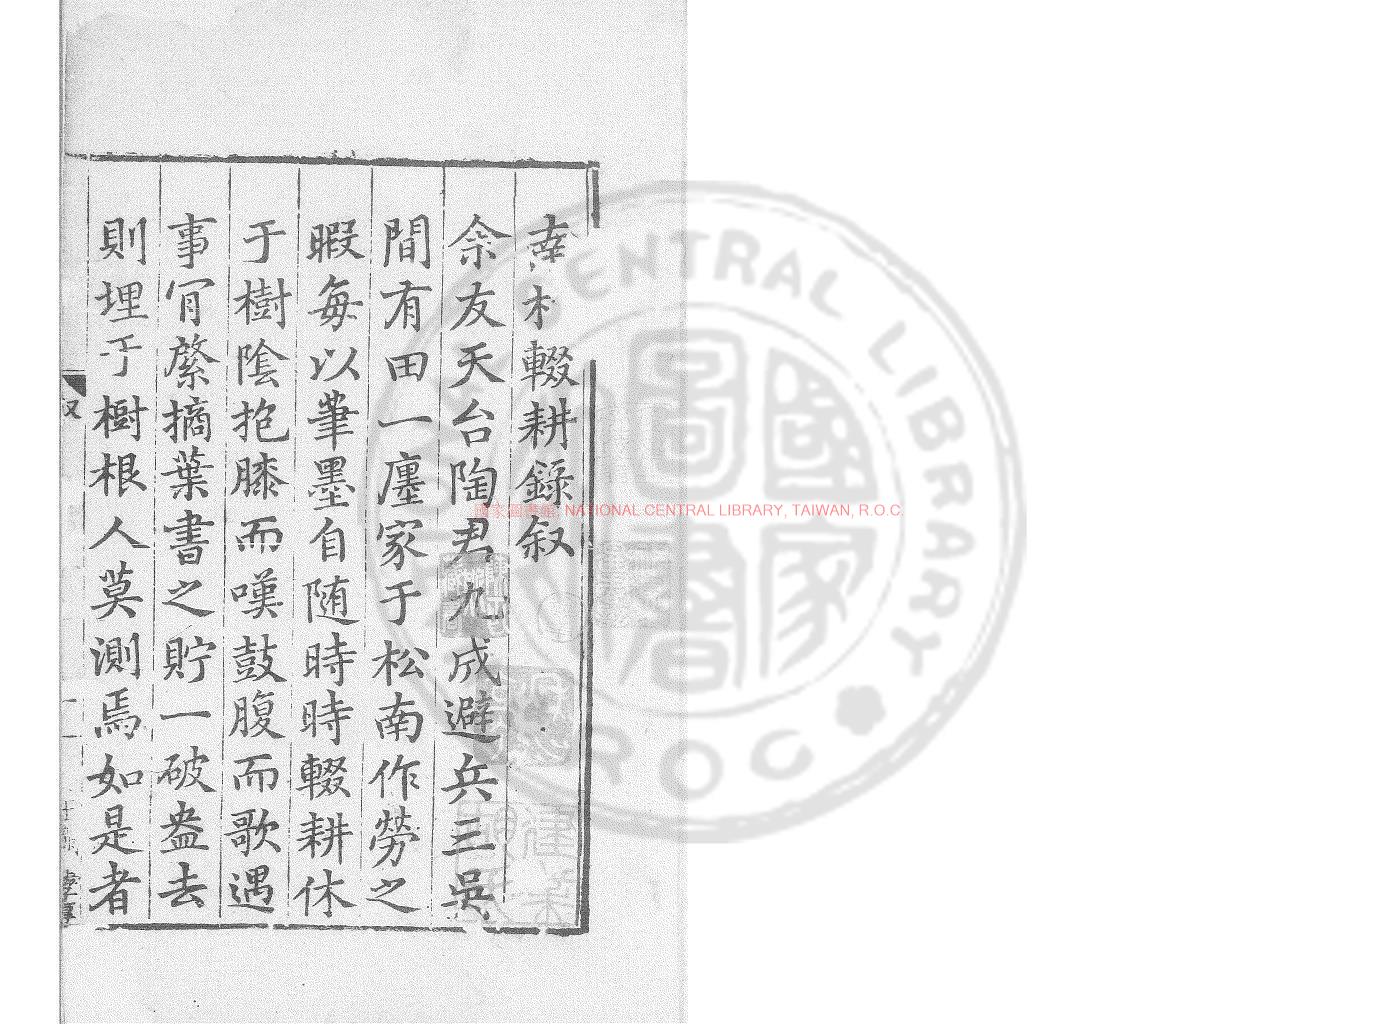 南村輟耕錄叙
余友天台陶君九成避兵三吳
間有田一廛家于松南作勞之
暇每以筆墨自随時時輟耕休
于樹陰抱膝而嘆鼓腹而歌遇
事肎綮摘葉書之貯一破盎去
則埋于樹根人莫測焉如是者
叙
一
國家圖書館 NATIONAL CENTRAL LIBRARY, TAIWAN, R.O.C.
CENTRAL LIBRARY
R.O.C.
國家圖書館